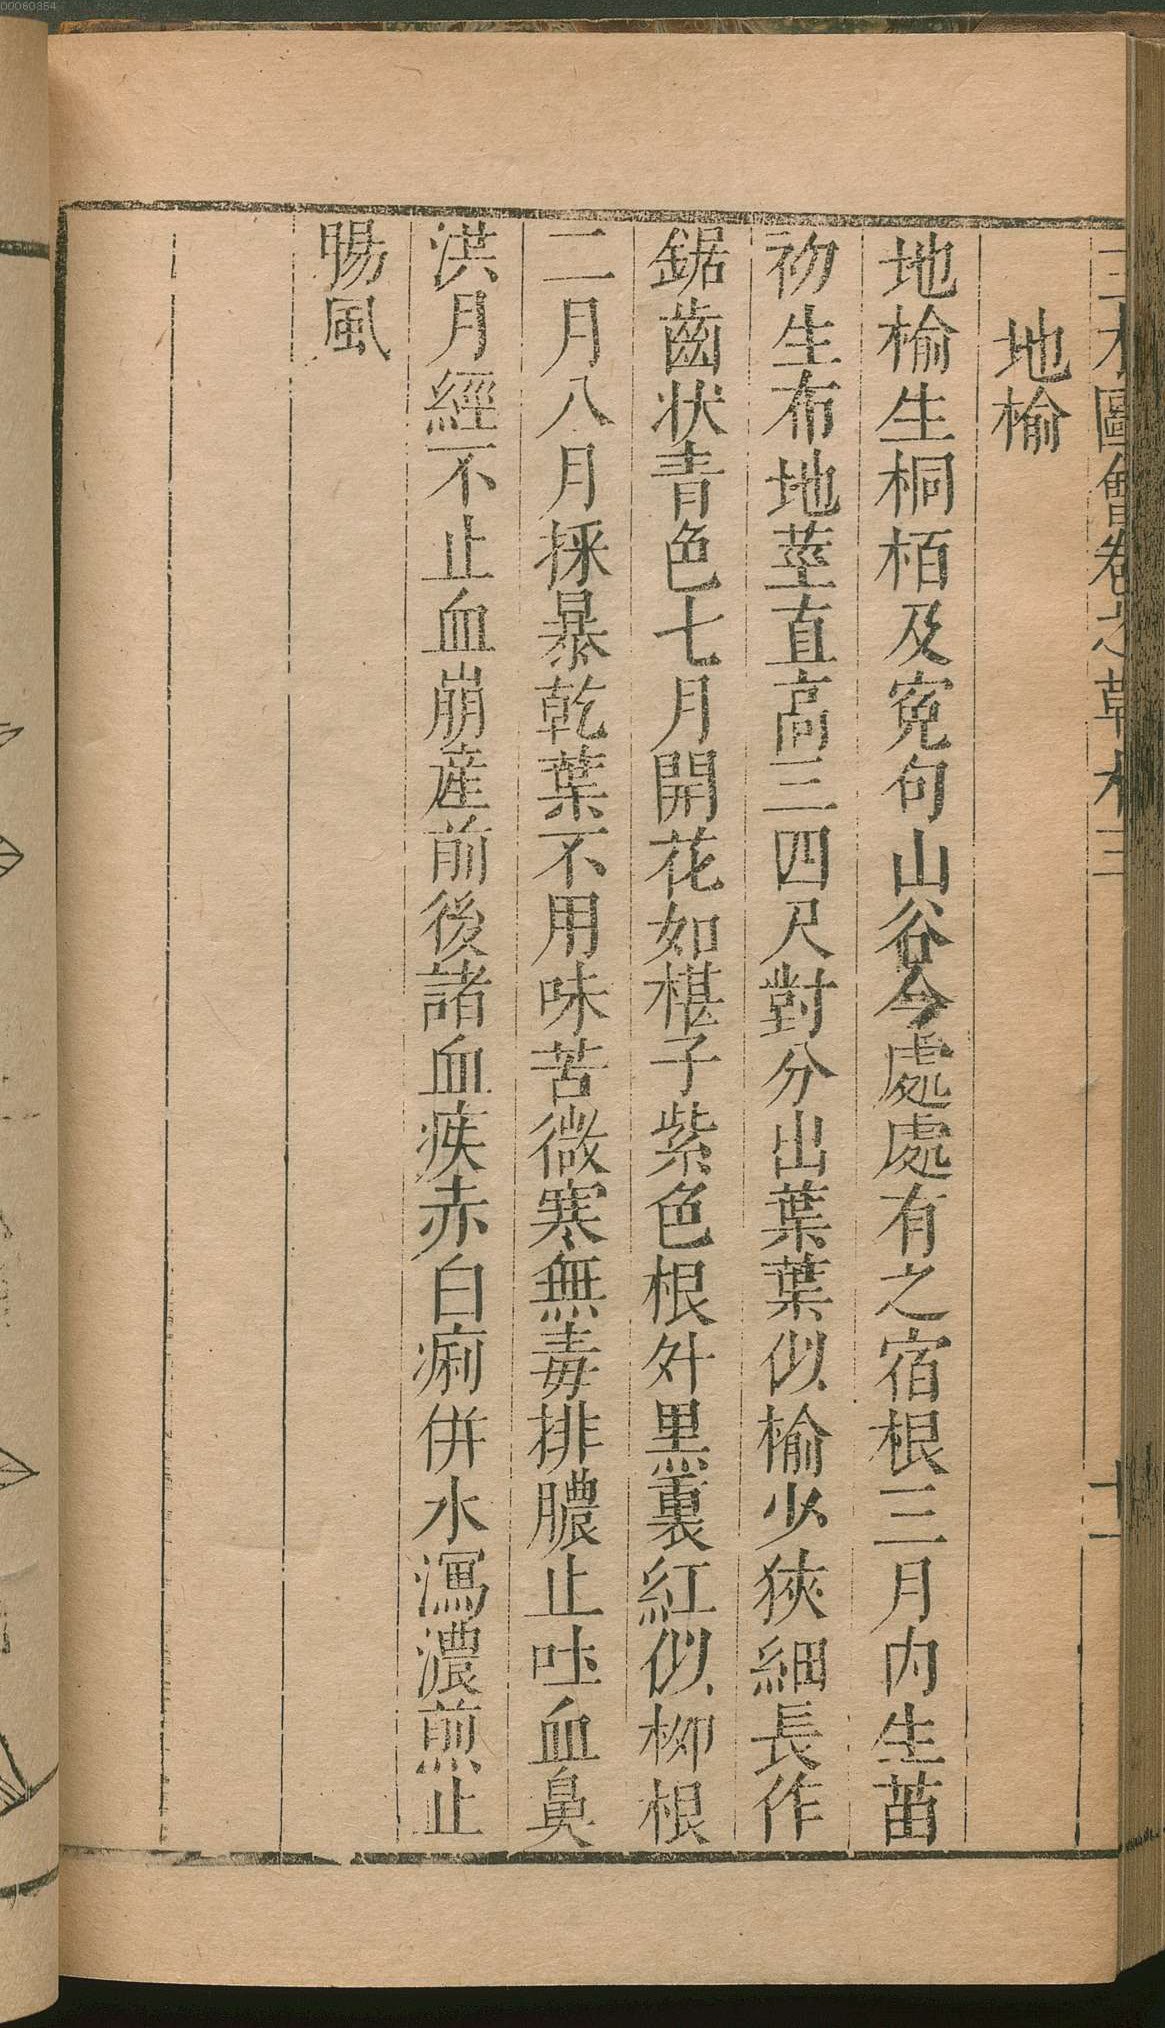 三才圖會卷之草木三
十一
地榆
地榆生桐栢及寃句山谷今處處有之宿根三月内生苗
初生布地莖直高三四尺對分出葉葉似榆少狹細長作
鋸齒状青色七月開花如椹子紫色根外黒裏紅似柳根
二月八月採暴乾葉不用味苦微寒無毒排膿止吐血鼻
洪月經不止血崩産前後諸血疾赤白痢併水瀉濃煎止
腸風
00060354